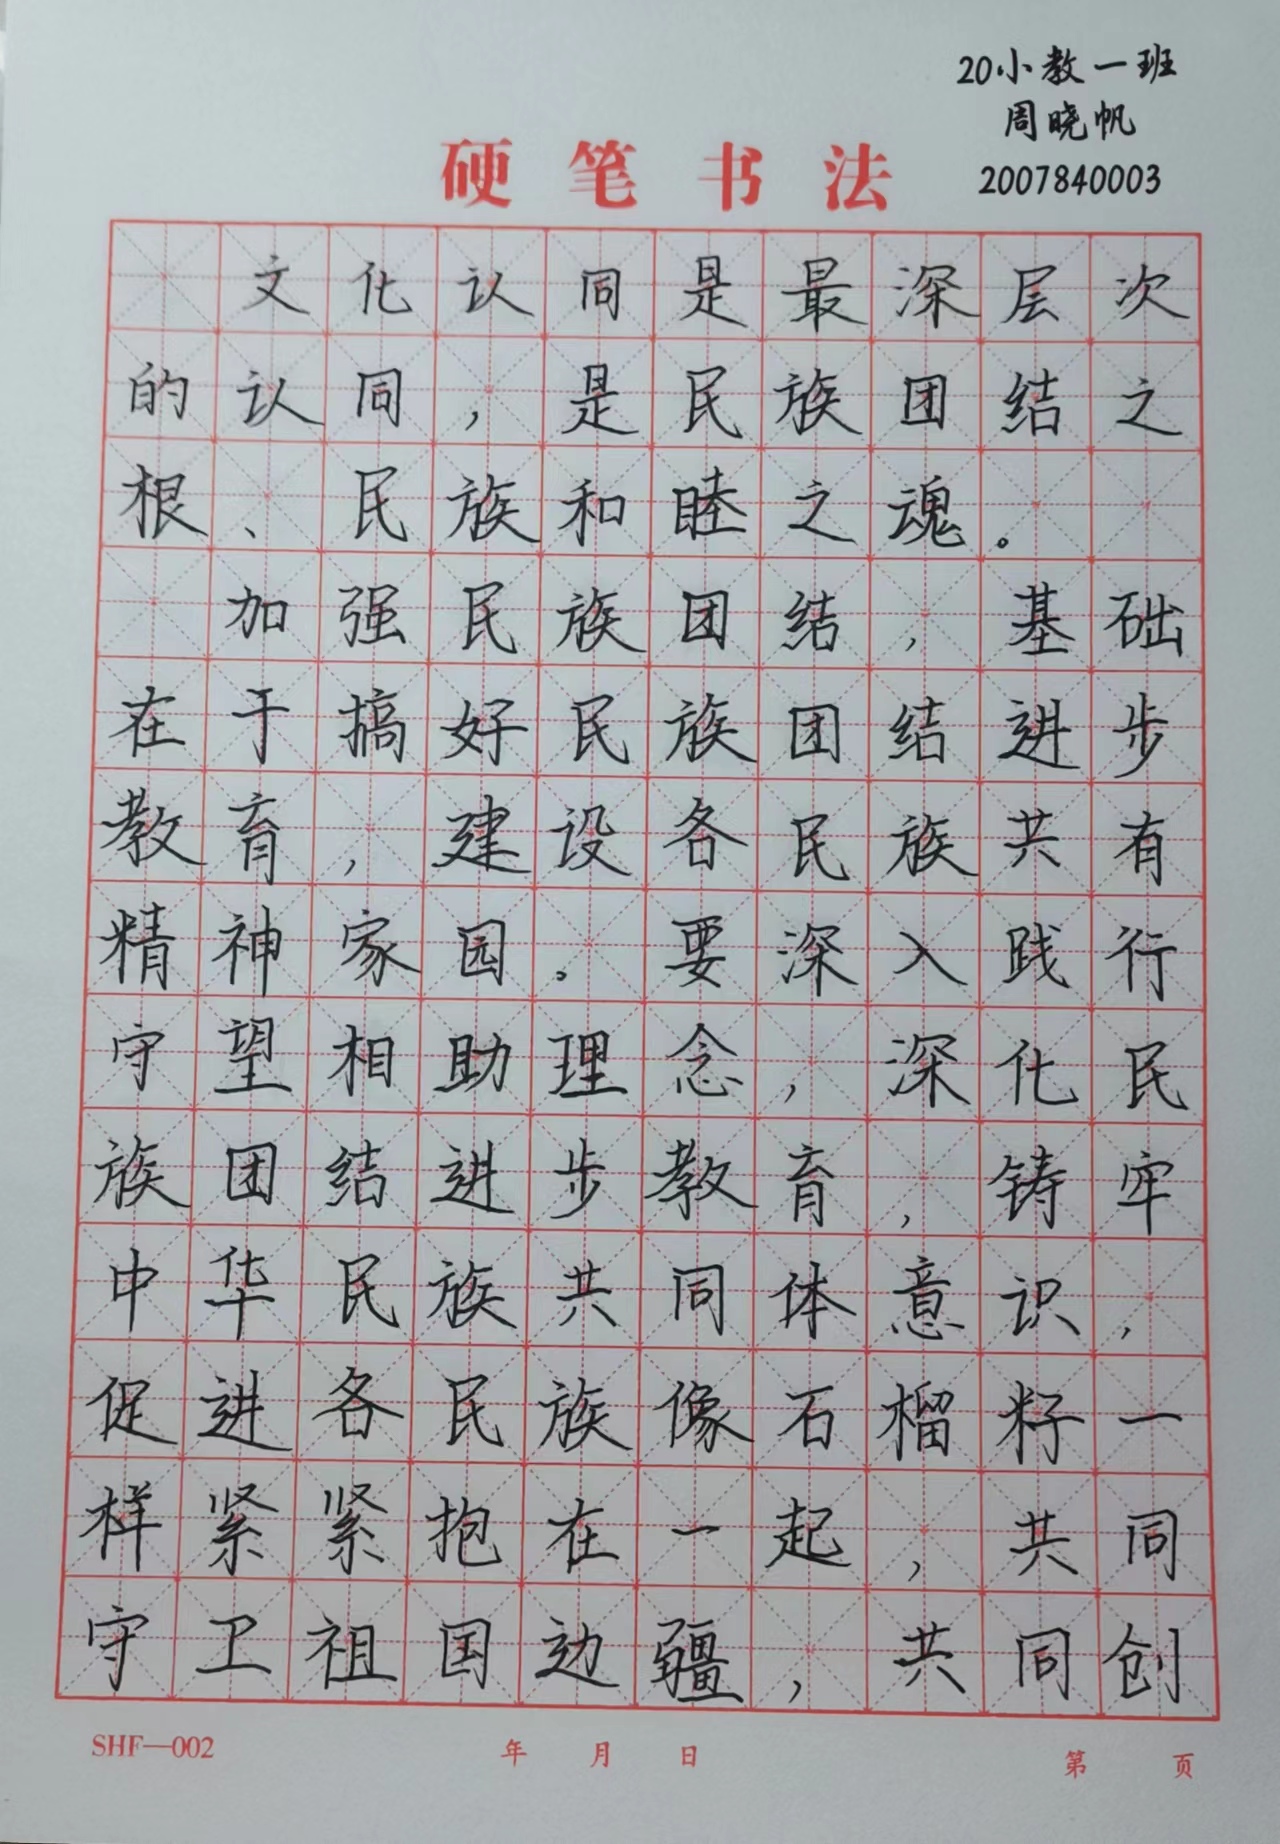 20小教一班
周晓帆
2007840003
硬笔书法
文化认同是最深层次
的认同，是民族团结之
根、民族和睦之魂。
加强民族团结，基础
在于搞好民族团结进步
教育，建设各民族共有
精神家园。要深入践行
守望相助理念，深化民
族团结进步教育，铸牢
中华民族共同体意识，
促进各民族像石榴籽一
样紧紧抱在一起，共同
守卫祖国边疆，共同创
SHF—002 年 月 日 第 页